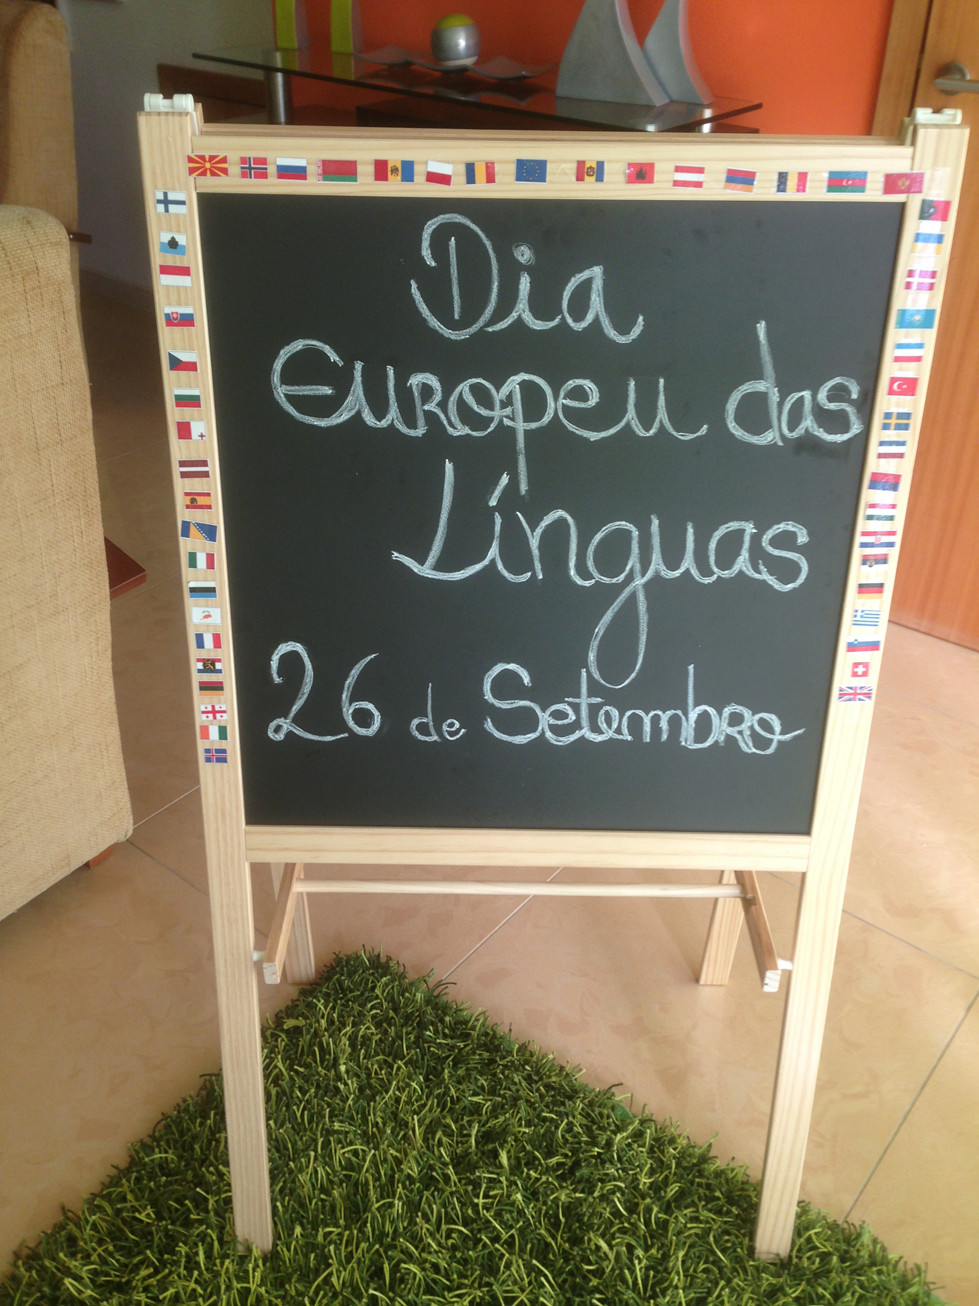 Dia
Europeu das
Línguas
26 de Setembro